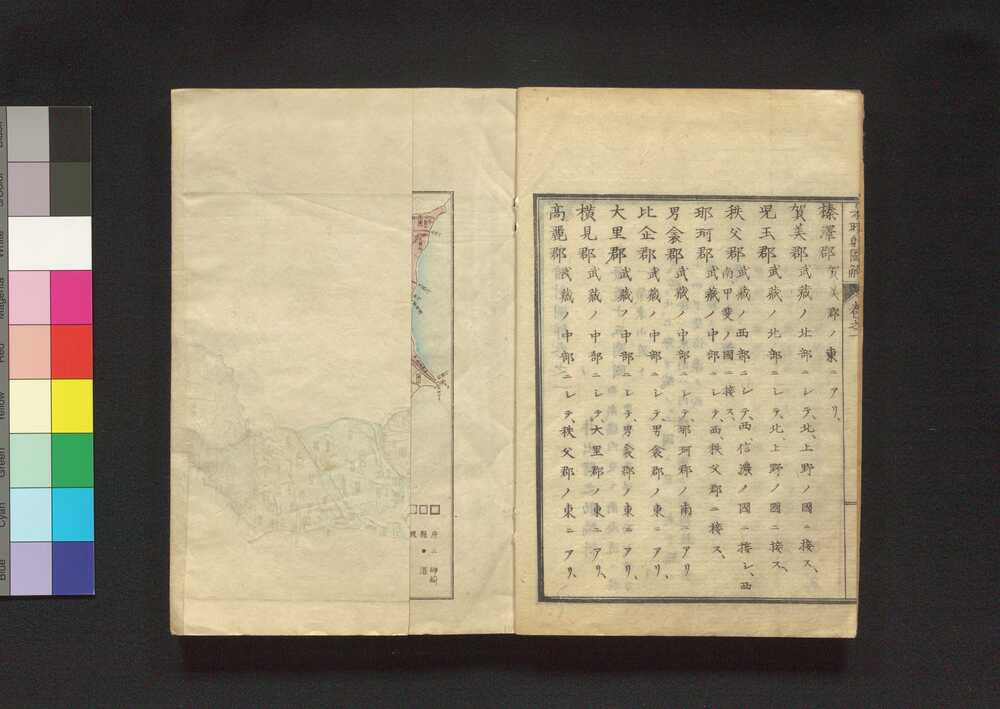 榛澤郡 賀美郡ノ東ニアリ、
賀美郡 武藏ノ北部ニシテ、北、上野ノ國ニ接ス、
児玉郡 武藏ノ北部ニシテ、北、上野ノ國ニ接ス、
秩父郡 武藏ノ西部ニシテ、西、信濃ノ國ニ接シ、西
南甲斐ノ國ニ接ス、
那珂郡 武藏ノ中部ニシテ、西、秩父郡ニ接ス、
男衾郡 武藏ノ中部ニシテ、那珂郡ノ南ニアリ
比企郡 武藏ノ中部ニシテ、男衾郡ノ東ニアリ、
大里郡 武藏ノ中部ニシテ、男衾郡ノ東ニアリ、
横見郡 武藏ノ中部ニシテ、大里郡ノ東ニアリ、
高麗郡 武藏ノ中部ニシテ、秩父郡ノ東ニアリ、
府
縣
港
岬
White
Magenta
Red
Yellow
Green
Cyan
Blue